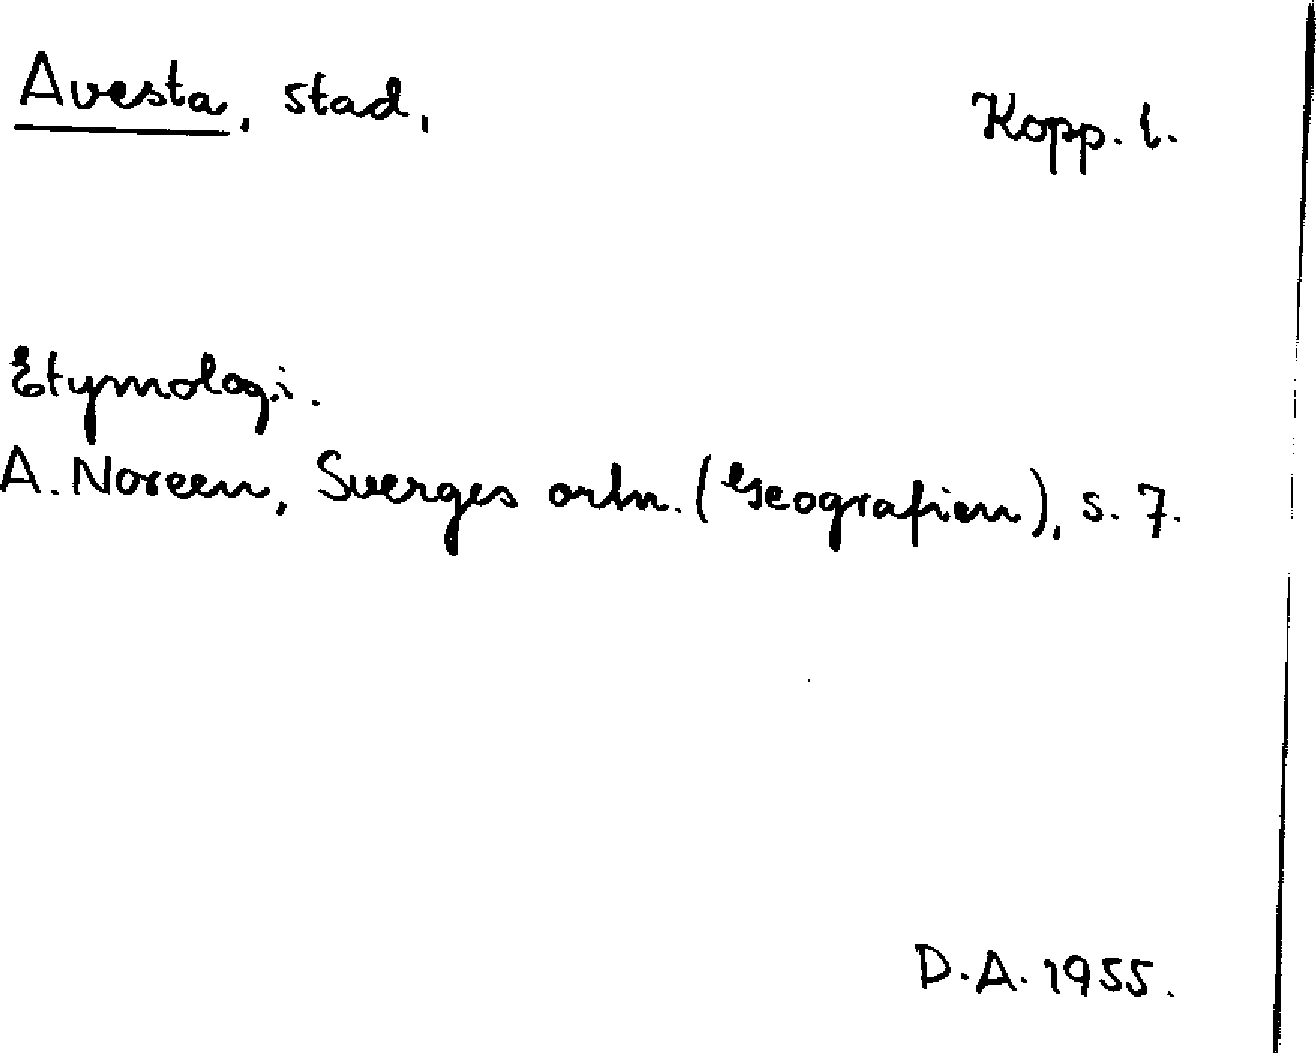 Avesta, stad, Kopp. l.
Etymologi.
A. Noreen, Sverges ortn. (Geografien), s. 7.
D.A. 1955.